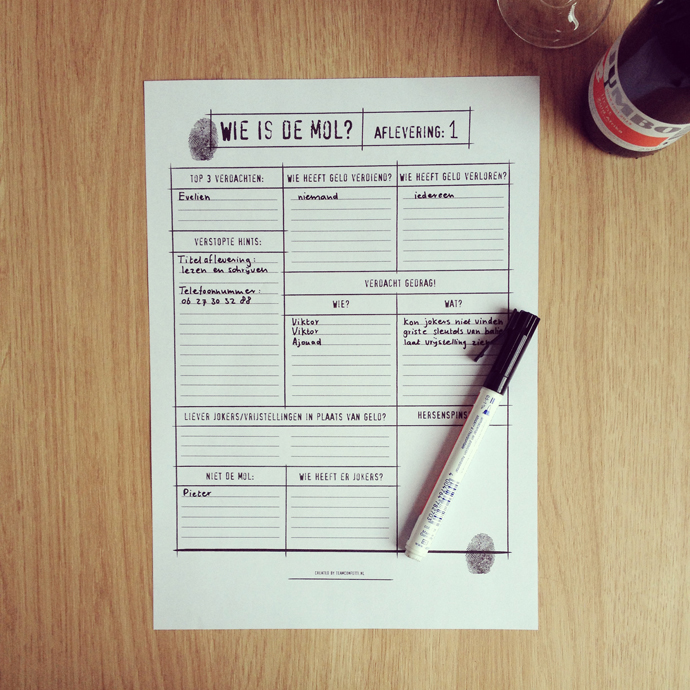 WIE IS DE MOL?
AFLEVERING: 1
TOP 3 VERDACHTEN:
Evelien
WIE HEEFT GELD VERDIEND?
niemand
WIE HEEFT GELD VERLOREN?
iedereen
VERSTOPTE HINTS:
Titel aflevering:
lezen en schrijven
Telefoonnummer:
06 27 30 52 88
VERDACHT GEDRAG!
WIE?
WAT?
Viktor
kon jokers niet vinden
Viktor
griste sleutels van
Ajouad
laat vrijstelling
LIEVER JOKERS/VRIJSTELLINGEN IN PLAATS VAN GELD?
NIET DE MOL:
Pieter
WIE HEEFT ER JOKERS?
CREATED BY TEAMCONFETTI.NL